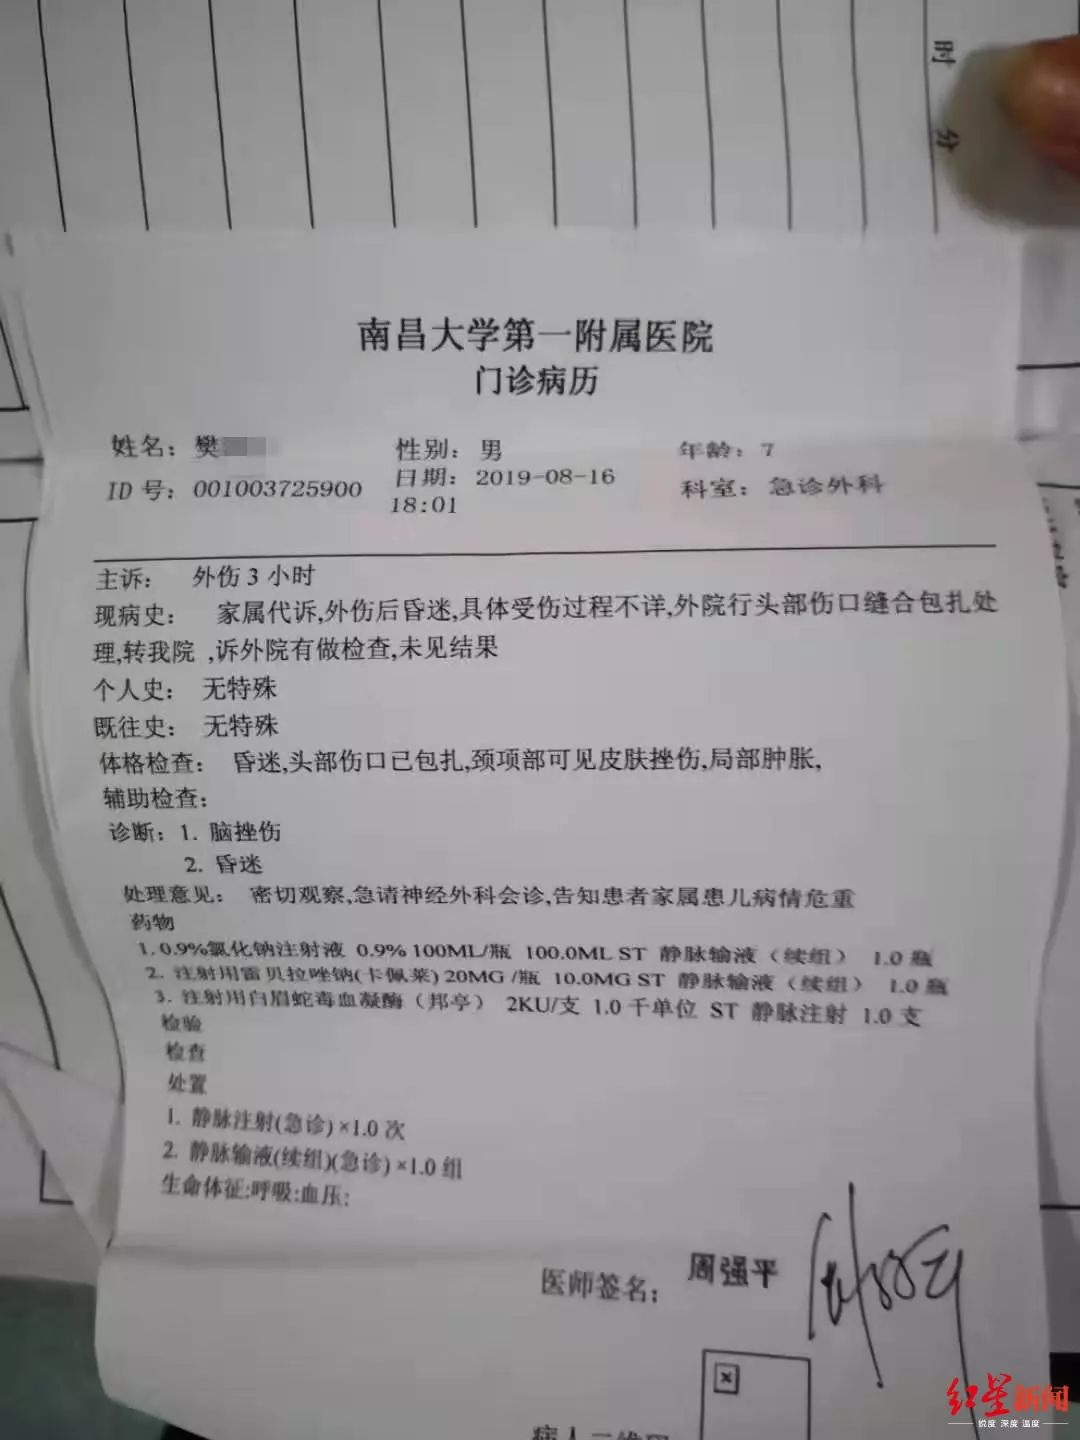 时 分
南昌大学第一附属医院
门诊病历
姓名：樊 性别：男 年龄：7
ID 号：001003725900 日期：2019-08-16 18:01 科室：急诊外科
主诉： 外伤 3 小时
现病史： 家属代诉,外伤后昏迷,具体受伤过程不详,外院行头部伤口缝合包扎处
理,转我院 ,诉外院有做检查,未见结果
个人史： 无特殊
既往史： 无特殊
体格检查： 昏迷,头部伤口已包扎,颈项部可见皮肤挫伤,局部肿胀,
辅助检查：
诊断：1. 脑挫伤
2. 昏迷
处理意见： 密切观察,急请神经外科会诊,告知患者家属患儿病情危重
药物
1. 0.9%氯化钠注射液 0.9% 100ML/瓶 100.0ML ST 静脉输液（续组） 1.0 瓶
2. 注射用雷贝拉唑钠(卡佩莱) 20MG /瓶 10.0MG ST 静脉输液（续组） 1.0 瓶
3. 注射用白眉蛇毒血凝酶（邦亭） 2KU/支 1.0 千单位 ST 静脉注射 1.0 支
检验
检查
处置
1. 静脉注射(急诊) ×1.0 次
2. 静脉输液(续组)(急诊) ×1.0 组
生命体征:呼吸:血压:
医师签名： 周强平
红星新闻
锐度 深度 温度